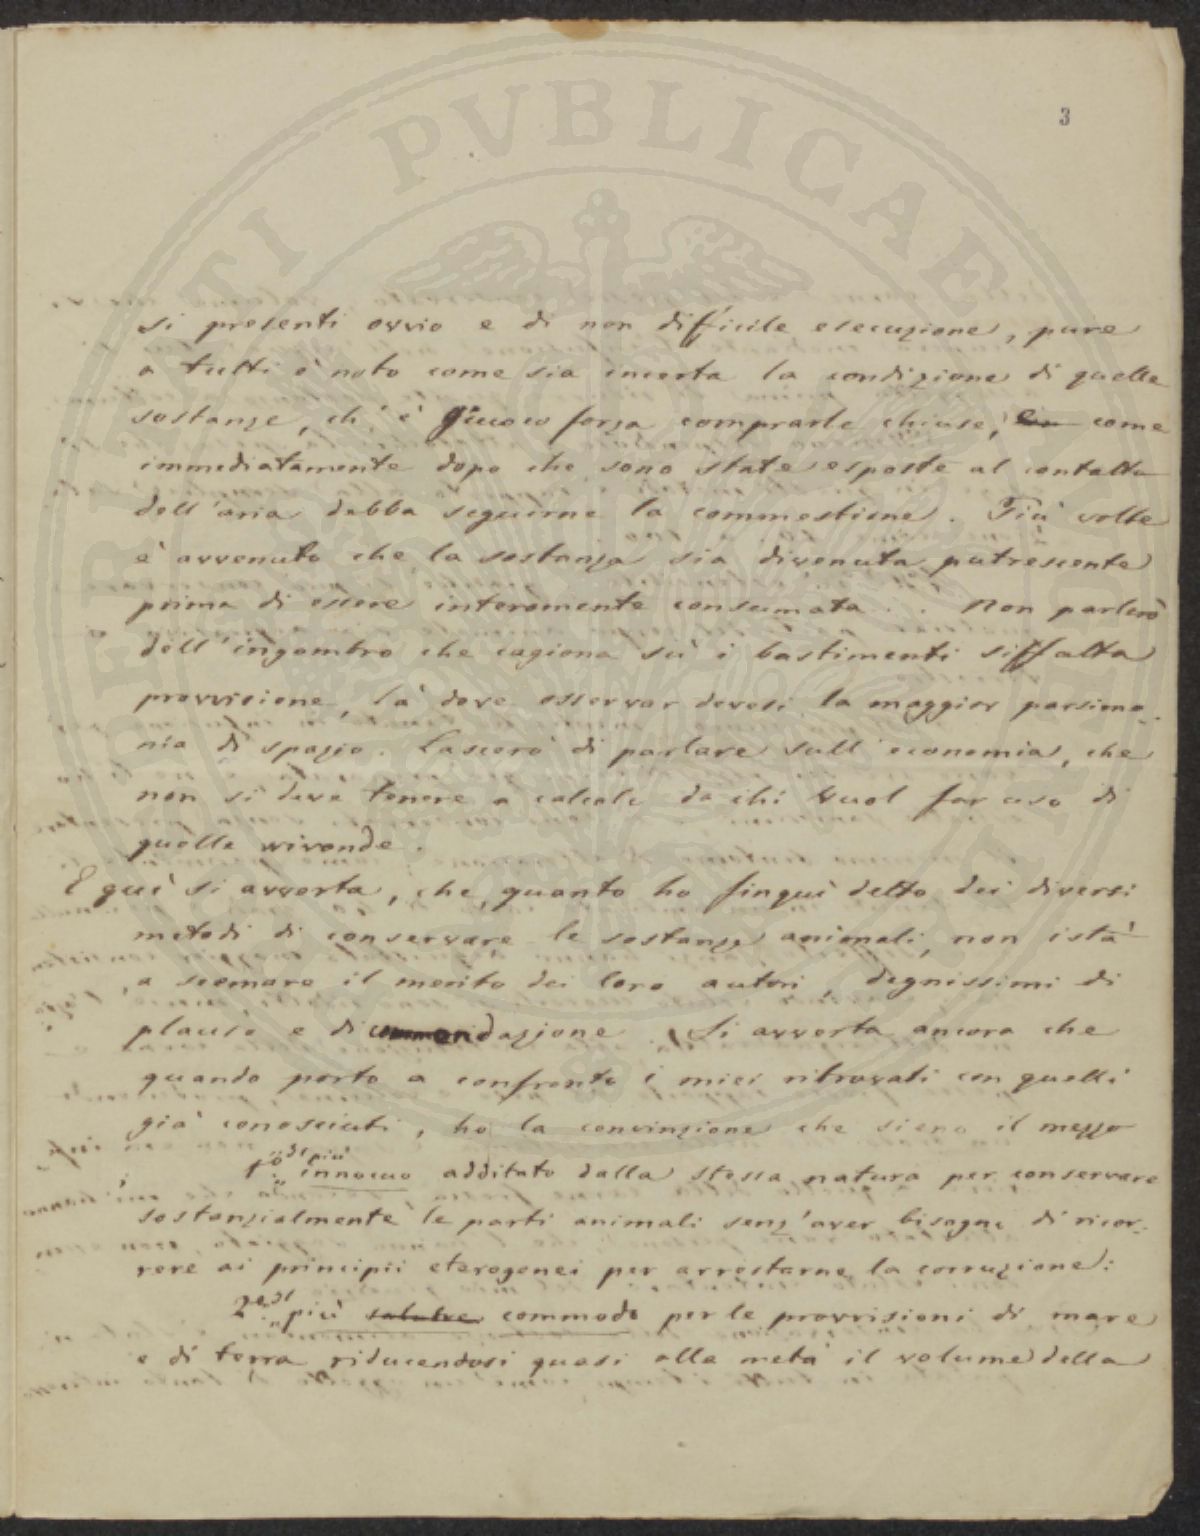 PERITATI PVBLICAE
3
si presenti ovvio e di non difficile esecuzione, pure
a tutti è noto come sia incerta la condizione di quelle
sostanze, ch' è giuoco forza comprarle chiuse, come
immediatamente dopo che sono state esposte al contatto
dell'aria debba seguirne la commestione. Più volte
è avvenuto che la sostanza sia divenuta putrescente
prima di essere interamente consumata . . Non parlerò
dell'ingombro che cagiona sù i bastimenti siffatta
provvisione, là dove osservar devesi la maggior parsimo-
nia di spazio. Lascerò di parlare sull'economia, che
non si deve tenere a calcolo da chi vuol far uso di
quelle vivande.
E quì si avverta, che quanto ho finquì detto dei diversi
metodi di conservare le sostanze animali, non istà
a scemare il merito dei loro autori, degnissimi di
plauso e di commendazione. Si avverta ancora che
quando porto a confronto i miei ritrovati con quelli
già conosciuti, ho la convinzione che sieno il mezzo
1º di più innocuo additato dalla stessa natura per conservare
sostanzialmente le parti animali senz'aver bisogno di ricor-
rere ai principii eterogenei per arrestarne la corruzione:
più salubre commodo per le provvisioni di mare
e di terra riducendosi quasi alla metà il volume della